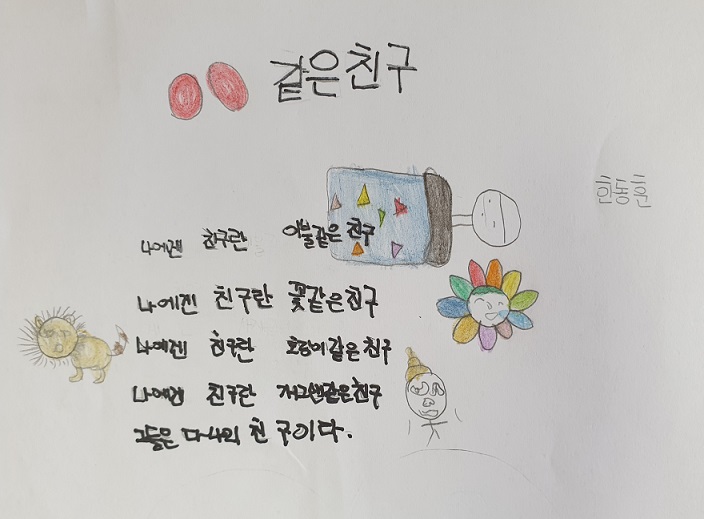 같은 친구
한동훈
나에겐 친구란 이불같은 친구
나에겐 친구란 꽃같은 친구
나에겐 친구란 호랑이 같은 친구
나에겐 친구란 같은 친구
그들은 다 나의 친구이다.